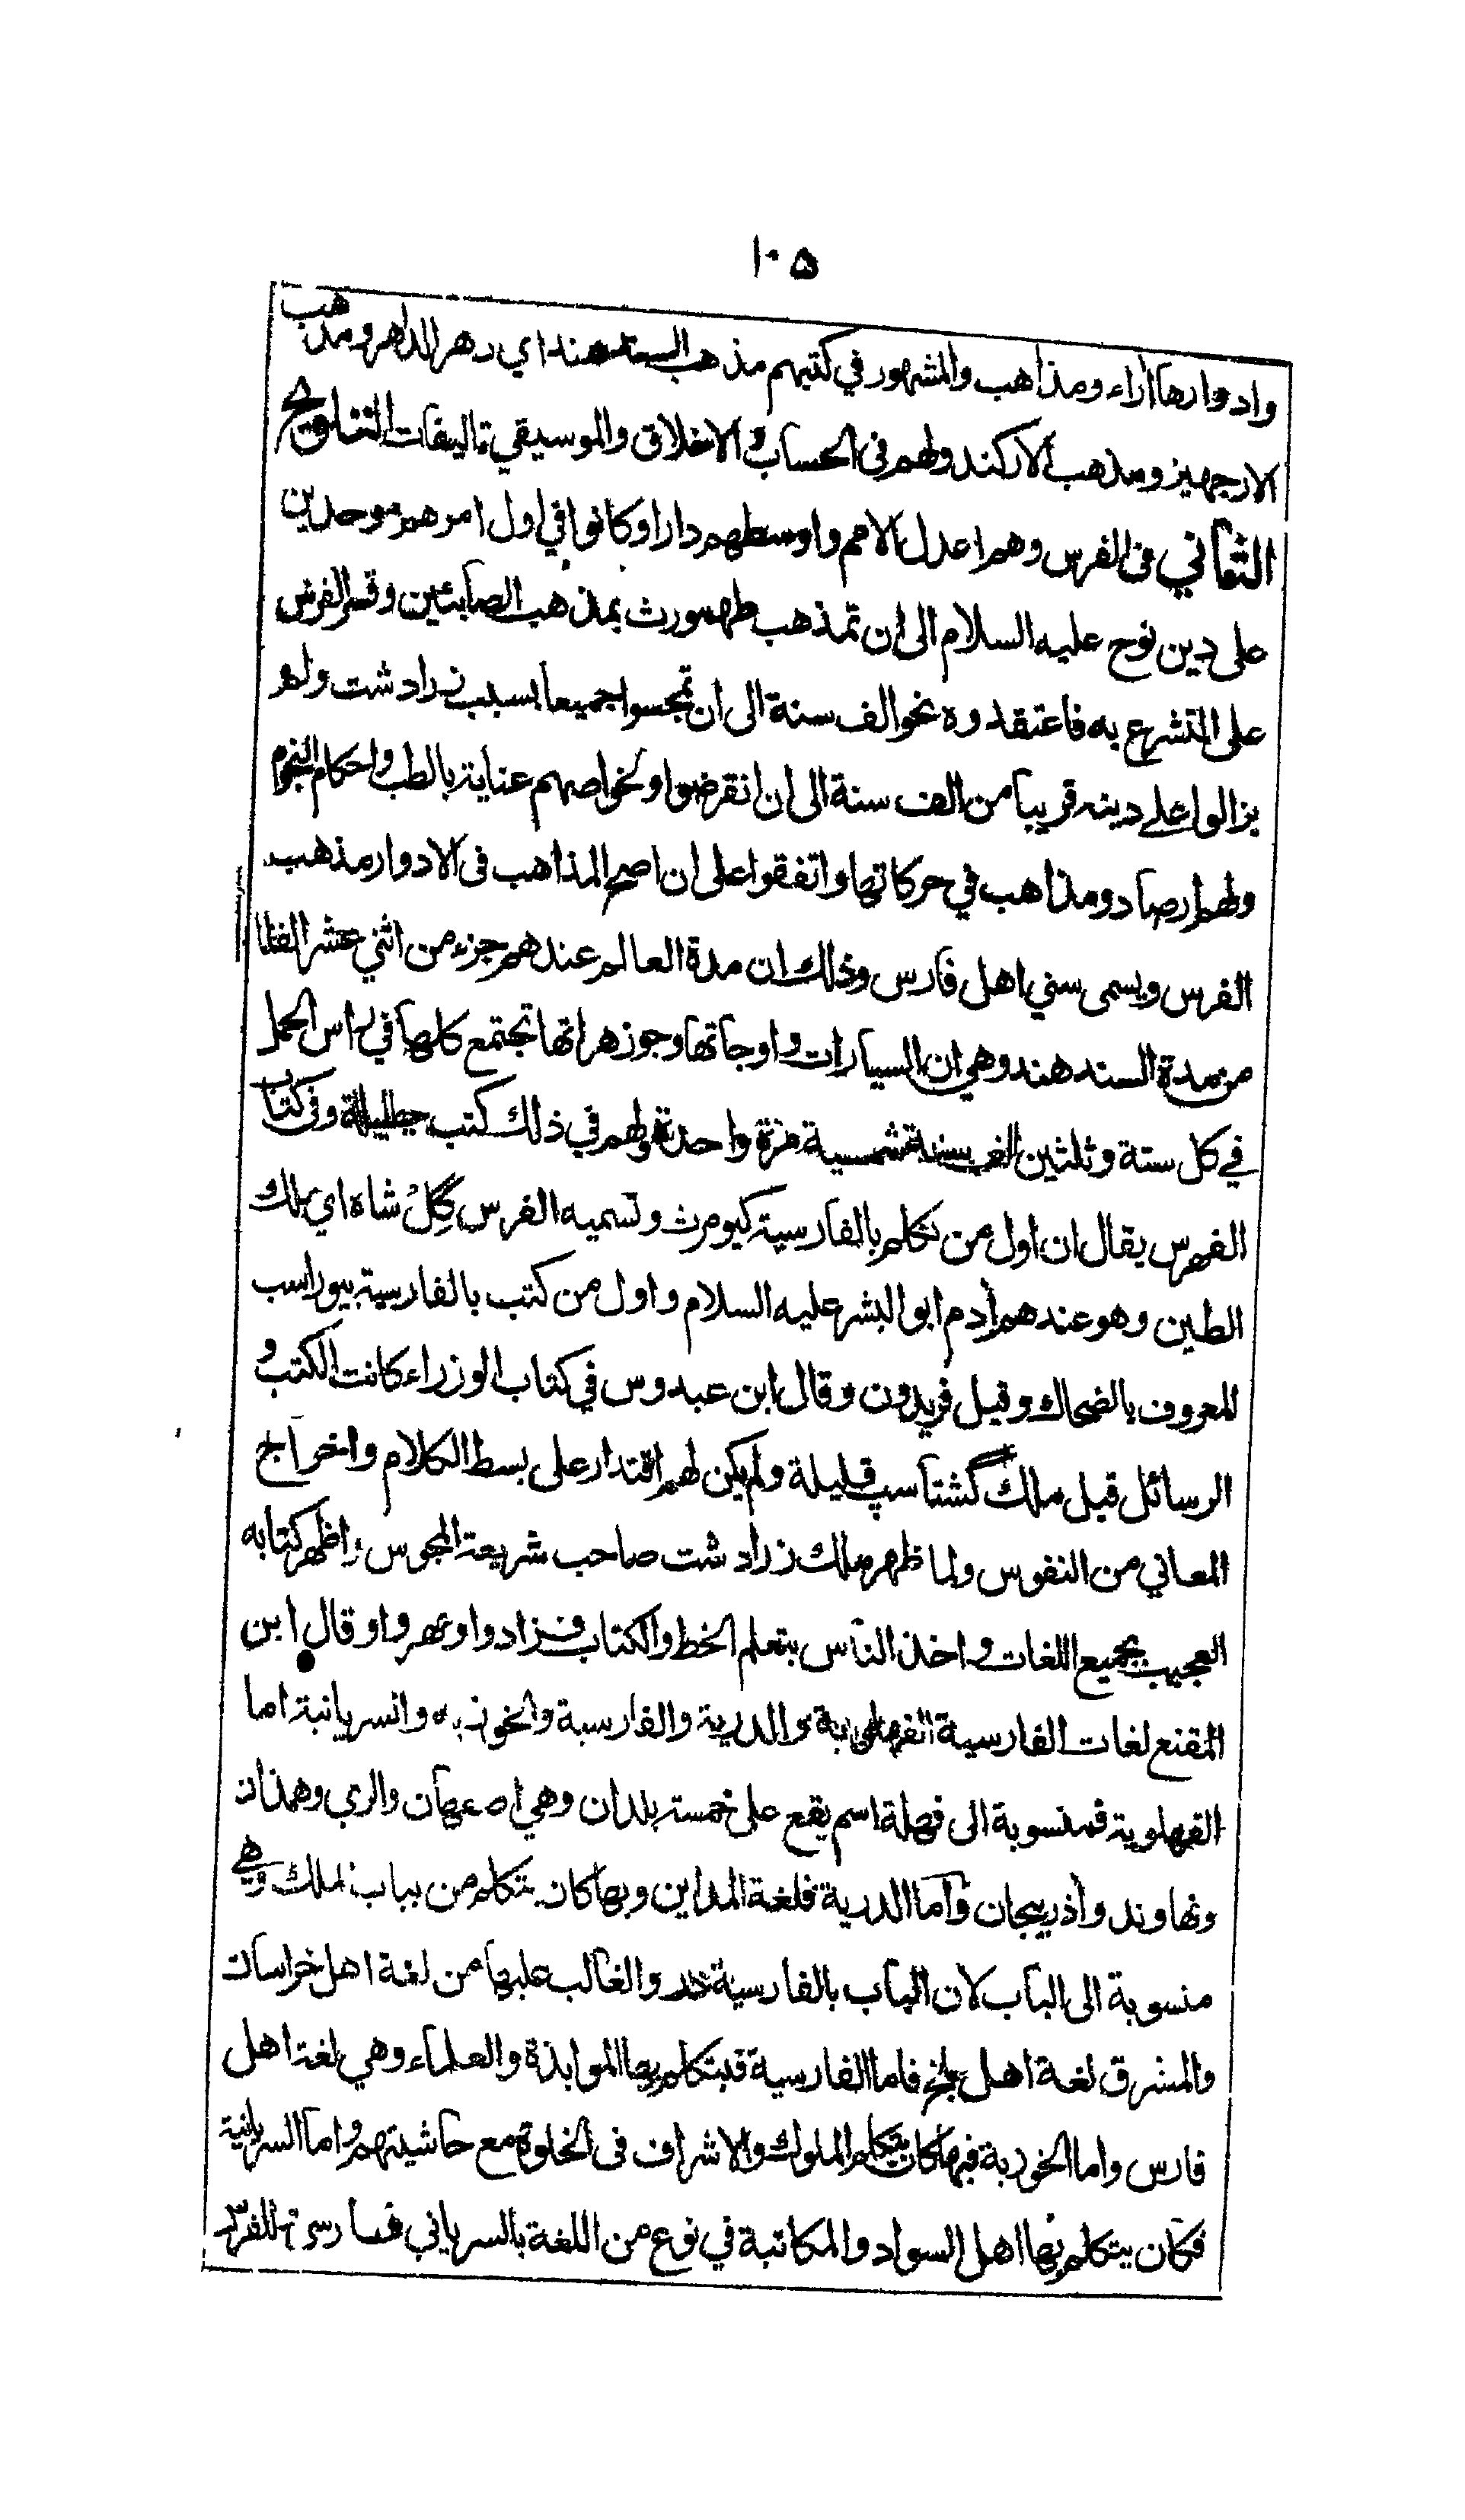 ١٠٥
وادوارها آراء ومذاهب والمشهور في كتبهم مذهب السند هند اي دهر الداهر ومذهب
الارجهيز ومذهب الاركند ولهم فى الحساب والاخلاق والموسيقي تاليفات التلويح
الثاني فى الفرس وهم اعدل الامم واوسطهم دارا وكانوا في اول امرهم موحدين
على دين نوح عليه السلام الى ان تمذهب طهمورث بمذهب الصابئين وقسر الفرس
على التشرع به فاعتقدوه نحو الف سنة الى ان تمجسوا جميعا بسبب زرادشت ولم
يزالوا علے دينه قريبا من الف سنة الى ان انقرضوا ولخواصهم عناية بالطب واحكام النجوم
ولهم ارصاد ومذاهب في حركاتها واتفقوا على ان اصح المذاهب فى الادوار مذهب
الفرس ويسمى سني اهل فارس وذلك ان مدة العالم عندهم جزء من اثني عشر الفا
من مدة السند هند وهي ان السيارات واوجاتها وجوزهراتها تجتمع كلها في راس الحمل
في كل ستة وثلثين الف سنة شمسية مرة واحدة ولهم في ذلك كتب جليلة وفى كتاب
الفهرس يقال ان اول من تكلم بالفارسية كيومرث وتسميه الفرس گِلْ شاه اي ملك
الطين وهو عندهم آدم ابو البشر عليه السلام واول من كتب بالفارسية بيوراسب
المعروف بالضحاك وقيل فريدون وقال ابن عبدوس في كتاب الوزراء كانت الكتب و
الرسائل قبل ملك گشتاسپ قليلة ولم يكن لهم اقتدار على بسط الكلام واخراج
المعاني من النفوس ولما ظهر ملك زرادشت صاحب شريعة المجوس واظهر كتابه
العجيب بجميع اللغات واخذ الناس بتعلم الخط والكتاب فزادوا ومهروا وقال ابن
المقنع لغات الفارسية الفهلوية والدرية والفارسية والخوزية والسريانية اما
الفهلوية فمنسوبة الى فهلة اسم يقع على خمسة بلدان وهي اصبهان والري وهمذان
ونهاوند وآذربيجان واما الدرية فلغة المداين وبها كان يتكلم من بباب الملك وهي
منسوبة الى الباب لان الباب بالفارسية در والغالب عليها من لغة اهل خراسان
والمشرق لغة اهل بلخ فاما الفارسية فيتكلم بها الموابذة والعلماء وهي لغة اهل
فارس واما الخوزية فبها كان يتكلم الملوك والاشراف فى الخلوة مع حاشيتهم واما السريانية
فكان يتكلم بها اهل السواد والمكاتبة في نوع من اللغة بالسرياني فارسي وللفرس